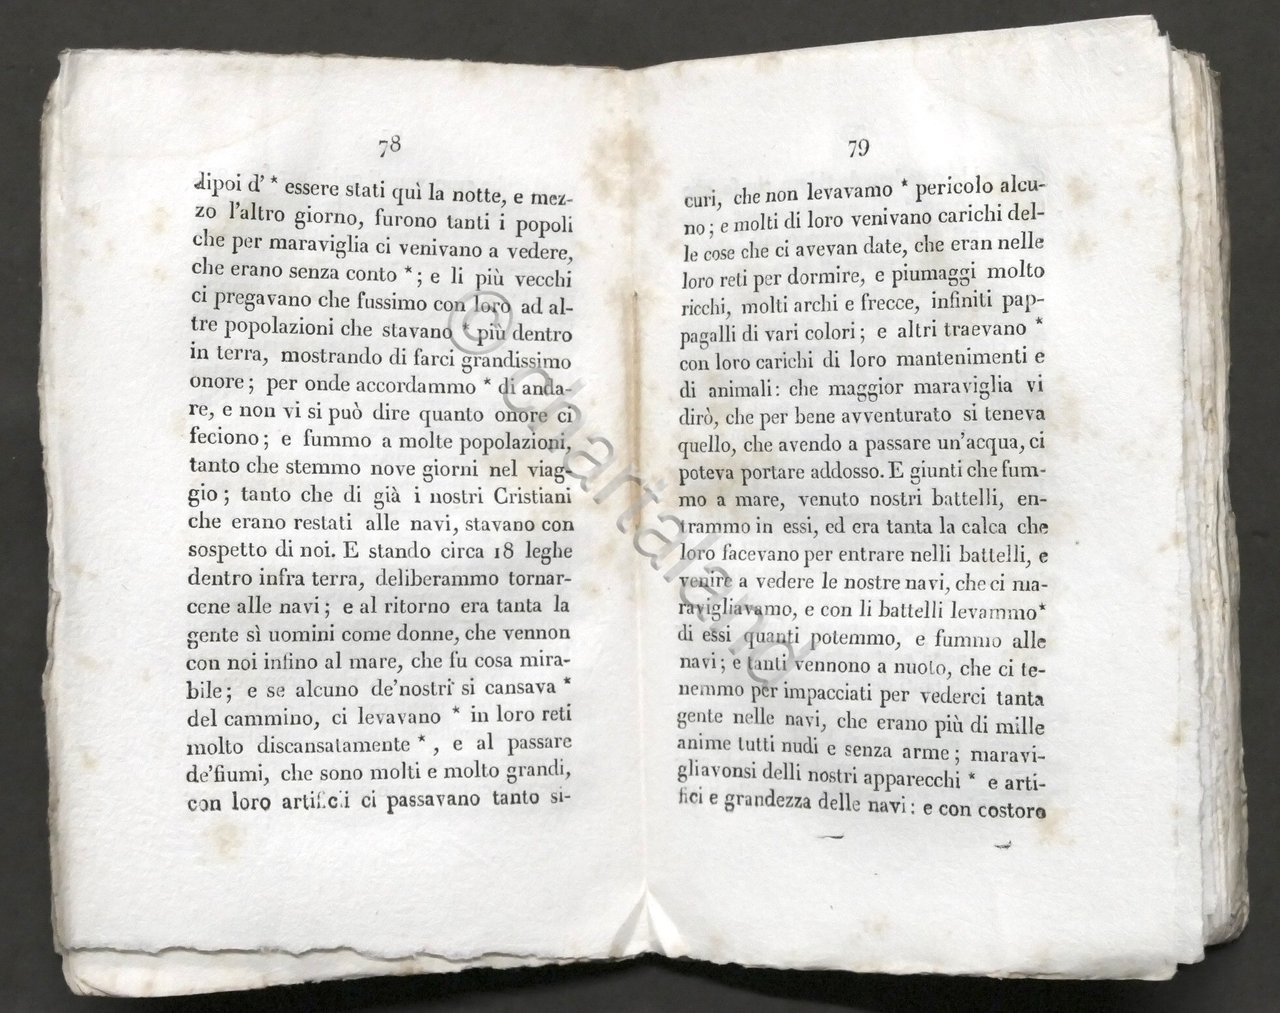 78
dipoi d' * essere stati quì la notte, e mez-
zo l'altro giorno, furono tanti i popoli
che per maraviglia ci venivano a vedere,
che erano senza conto * ; e li più vecchi
ci pregavano che fussimo con loro ad al-
tre popolazioni che stavano * più dentro
in terra, mostrando di farci grandissimo
onore ; per onde accordammo * di anda-
re, e non vi si può dire quanto onore ci
feciono ; e fummo a molte popolazioni,
tanto che stemmo nove giorni nel viag-
gio ; tanto che di già i nostri Cristiani
che erano restati alle navi, stavano con
sospetto di noi. E stando circa 18 leghe
dentro infra terra, deliberammo tornar-
cene alle navi ; e al ritorno era tanta la
gente sì uomini come donne, che vennon
con noi infino al mare, che fu cosa mira-
bile ; e se alcuno de'nostri si cansava *
del cammino, ci levavano * in loro reti
molto discansatamente * , e al passare
de'fiumi, che sono molti e molto grandi,
con loro artifici ci passavano tanto si-
79
curi, che non levavamo * pericolo alcu-
no ; e molti di loro venivano carichi del-
le cose che ci avevan date, che eran nelle
loro reti per dormire, e piumaggi molto
ricchi, molti archi e frecce, infiniti pap-
pagalli di vari colori ; e altri traevano *
con loro carichi di loro mantenimenti e
di animali : che maggior maraviglia vi
dirò, che per bene avventurato si teneva
quello, che avendo a passare un'acqua, ci
poteva portare addosso. E giunti che fum-
mo a mare, venuto nostri battelli, en-
trammo in essi, ed era tanta la calca che
loro facevano per entrare nelli battelli, e
venire a vedere le nostre navi, che ci ma-
ravigliavamo, e con li battelli levammo*
di essi quanti potemmo, e fummo alle
navi ; e tanti vennono a nuoto, che ci te-
nemmo per impacciati per vederci tanta
gente nelle navi, che erano più di mille
anime tutti nudi e senza arme ; maravi-
gliavonsi delli nostri apparecchi * e arti-
fici e grandezza delle navi : e con costoro
© chartaland